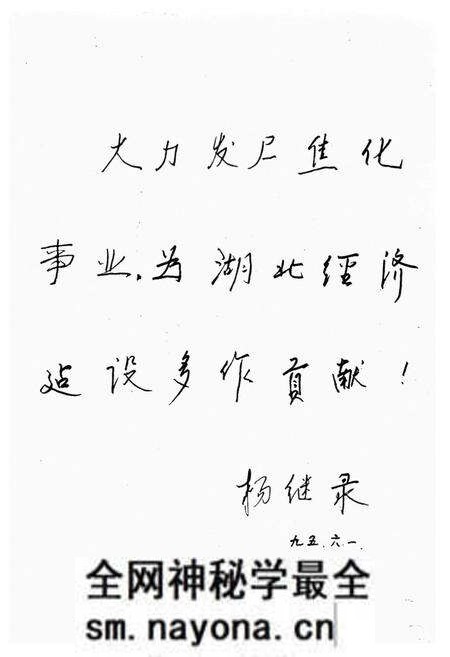 大力发尸焦化
事业，为湖北經济
迠设多作貢献！
杨继录
九五.六.一.
全网神秘学最全
sm.nayona.cn